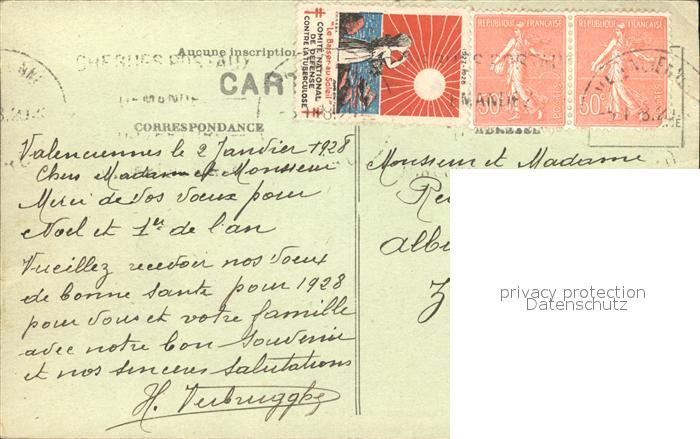 Aucune inscription
CHEQUES POSTAUX
CART
COMITÉ NATIONAL
DE DÉFENSE
CONTRE LA TUBERCULOSE
"Le Baiser au Soleil"
REPUBLIQUE FRANÇAISE
50c
POSTES
REPUBLIQUE FRANÇAISE
50c
POSTES
CORRESPONDANCE
ADRESSE
Valenciennes le 2 Janvier 1928
Chers Madame et Monsieur
Merci de vos vœux pour
Noel et 1er de l'an
Veuillez recevoir nos voeux
de bonne sante pour 1928
pour vous et votre famille
avec notre bon souvenir
et nos sinceres salutations
H. Verbrugghe
Monsieur et Madame
privacy protection
Datenschutz